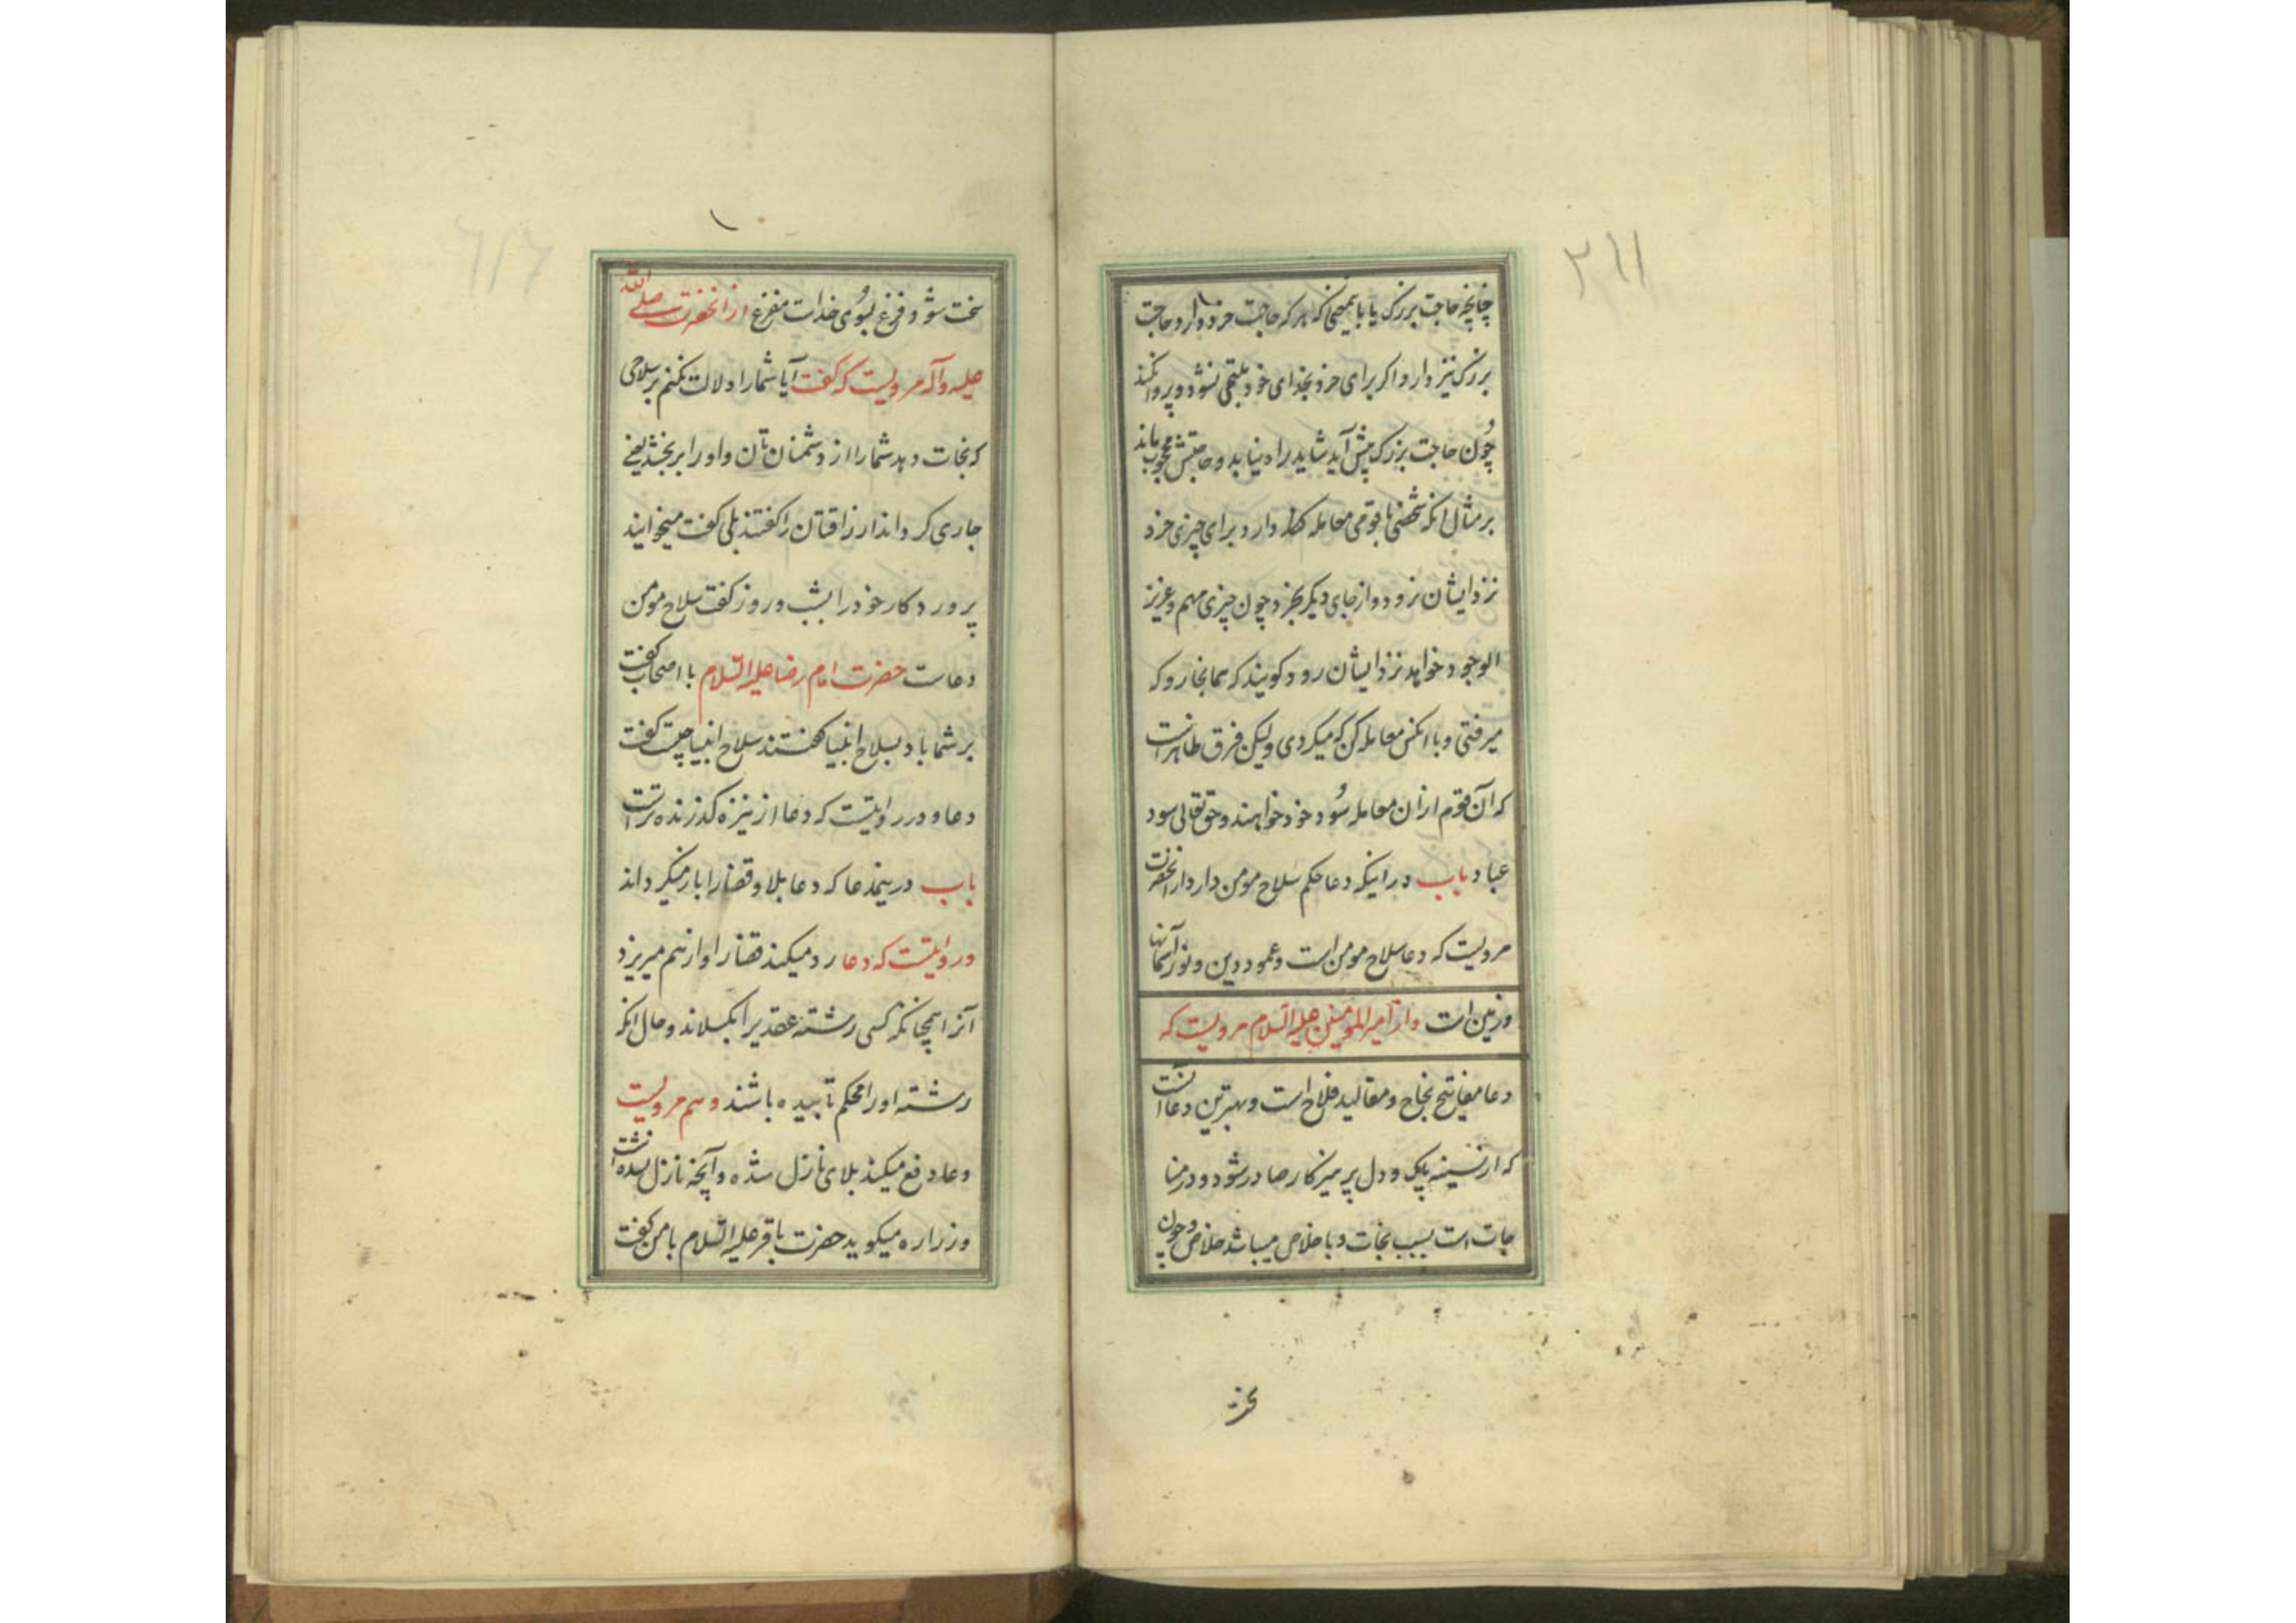 ۳۱۱
چنانچه حاجت بزرک یا بابیمعنی که هر که حاجت خرد دارد و حاجت
بزرک نیز دارد اکر برای خرد بخدای خود ملتجی نشود و پروا نکند
چون حاجت بزرک پیش آید شاید راه نیابد و حاجتش محجوب ماند
بر مثال انکه شخصی با قومی معامله کلا دارد برای چیزی خرد
نزد ایشان نرود و از جای دیکر بخرد چون چیزی مهم و عزیز
الوجود خواهد نزد ایشان رود کویند که همانجا رو که
میرفتی و با انکس معامله کن که میکردی ولیکن فرق ظاهر است
که آن قوم از ان معامله سود خود خواهند و حق تعالی سود
عباد باب در اینکه دعا حکم سلاح مومن دارد از انحضرت
مرویست که دعا سلاح مومن است و عمود دین و نور آسمانها
و زمین است و از امیر المومنین علیه السلام مرویست که
دعا مفاتیح نجاح و مقالید فلاح است و بهترین دعا انست
که از سینه پاک و دل پرهیزکار صادر شود و در منا
جات است بسبب نجات و با خلاص میباشد خلاص و چون
سخت شود فزع بسوی خداست مفزع از انحضرت صلی الله
علیه و آله مرویست که کفت آیا شما را دلالت نکنم بر سلاحی
که نجات دهد شما را از دشمنان تان و اورا بر بخشد یعنی
جاری کرداند ارزاقتان را کفتند بلی کفت میخوانید
پروردکار خود را بشب و روز کفت سلاح مومن
دعاست حضرت امام رضا علیه السلام با اصحاب کفت
بر شما باد بسلاح انبیا کفتند سلاح انبیا چیست کفت
دعا و در روایتست که دعا از نیزه کذرنده تر است
باب در بیند عا که دعا بلا و قضا را باز میکرداند
در روایتست که دعا رد میکند قضا را و از هم میریزد
آنرا همچنانکه کسی رشته عقدیرا بکسلاند و حال انکه
رشته او را محکم تابیده باشند و هم مرویست
دعا دفع میکند بلای نازل شده و آنچه نازل نشده است
و زراره میکوید حضرت باقر علیه السلام با من کفت